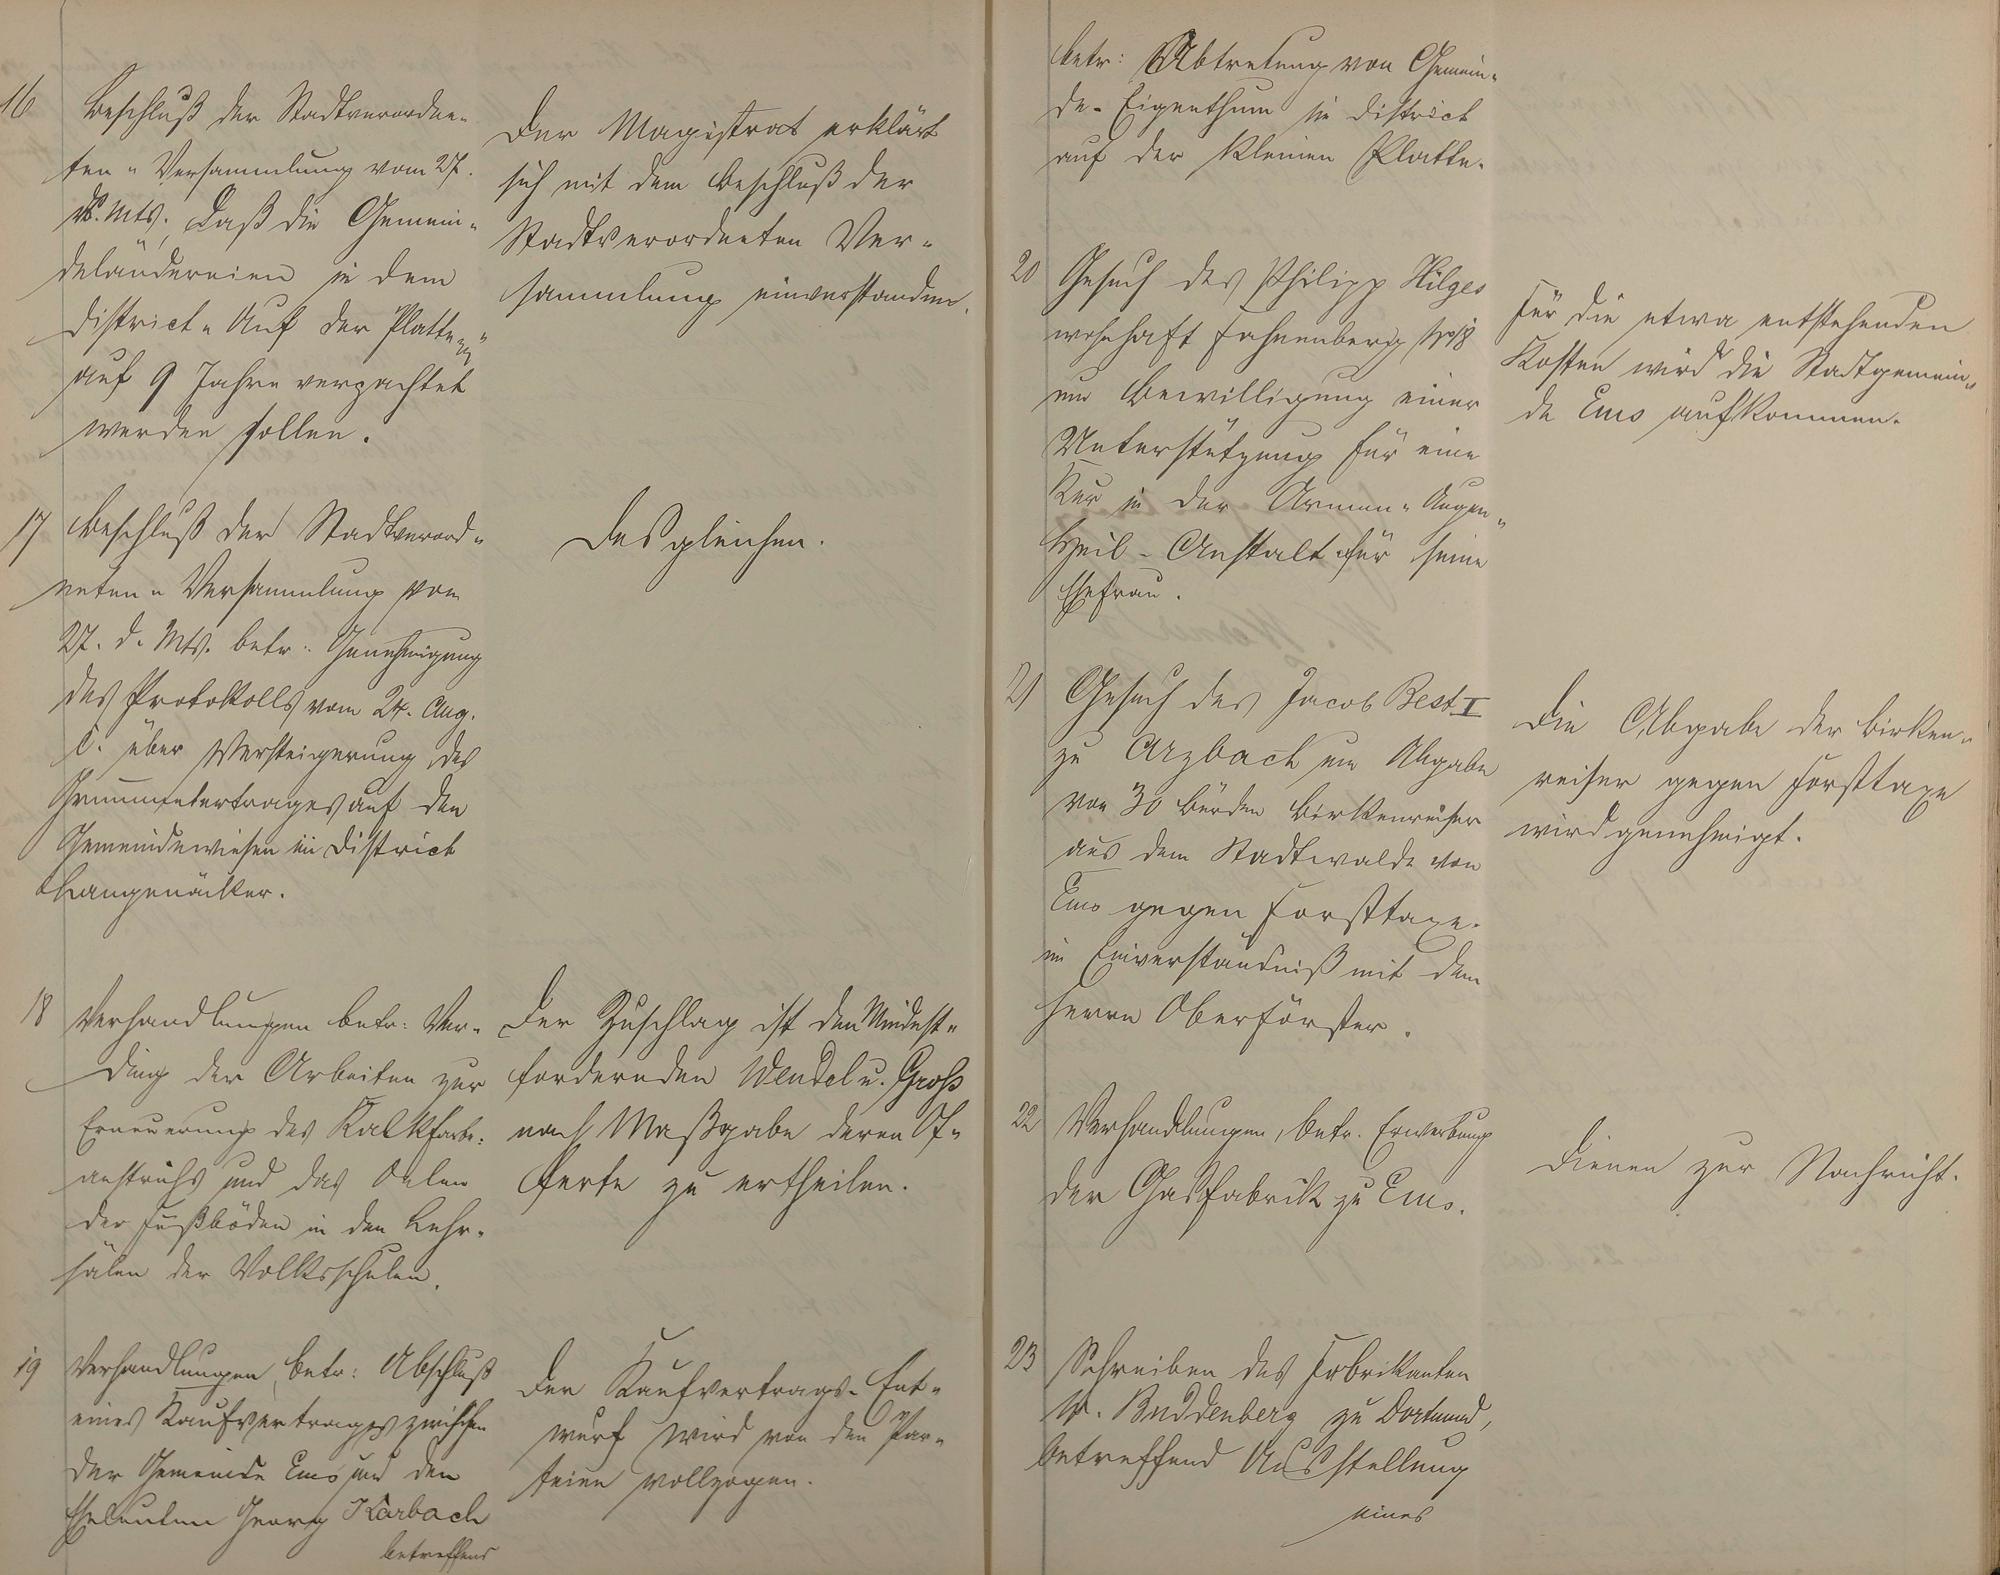 16
Beschluß der Stadtverordne-
ten-Versammlung vom 27.
ds. Mts., daß die Gemein-
deländereien in dem
District "Auf der Platte"
auf 9 Jahre verpachtet
werden sollen.
Der Magistrat erklärt
sich mit dem Beschluß der
Stadtverordneten Ver-
sammlung einverstanden.
17
Beschluß der Stadtverord-
neten-Versammlung vom
27. d. Mts. betr. Genehmigung
des Protokolls vom 24. Aug.
c. über Versteigerung des
Grummetertrages auf den
Gemeindewiesen im District
Langenäcker.
Desgleichen.
18
Verhandlungen betr. Ver-
ding der Arbeiten zur
Erneuerung des Kalkfarbe-
anstrichs und das Oelen
der Fußböden in den Lehr-
sälen der Volksschulen.
Der Zuschlag ist den Mindest-
fordernden Wendel u. Groß
nach Maßgabe deren Of-
ferte zu ertheilen.
19
Verhandlungen, betr: Abschluß
eines Kaufvertrages zwischen
der Gemeinde Ems und den
Eheleuten Georg Karbach
betreffend
Der Kaufvertrags-Ent-
wurf wird von den Par-
teien vollzogen.
betr: Abtretung von Gemein-
de-Eigenthum im District
auf der kleinen Platte.
20
Gesuch des Philipp Hilges
wohnhaft Fahnenberg No 8
um Bewilligung einer
Unterstützung für eine
Kur in der Armen-Augen-
Heil-Anstalt für seine
Ehefrau.
Für die etwa entstehenden
Kosten wird die Stadtgemein-
de Ems aufkommen.
21
Gesuch des Jacob Best I
zu Arzbach um Abgabe
von 30 Bürden Birkenreiser
aus dem Stadtwalde von
Ems gegen Forsttaxe.
im Einverständniß mit dem
Herrn Oberförster.
Die Abgabe der Birken-
reiser gegen Forsttaxe
wird genehmigt.
22
Verhandlungen, betr. Erwerbung
der Gasfabrik zu Ems.
Dienen zur Nachricht.
23
Schreiben des Fabrikanten
Buddenberg zu Dortmund,
betreffend Ausstellung
eines